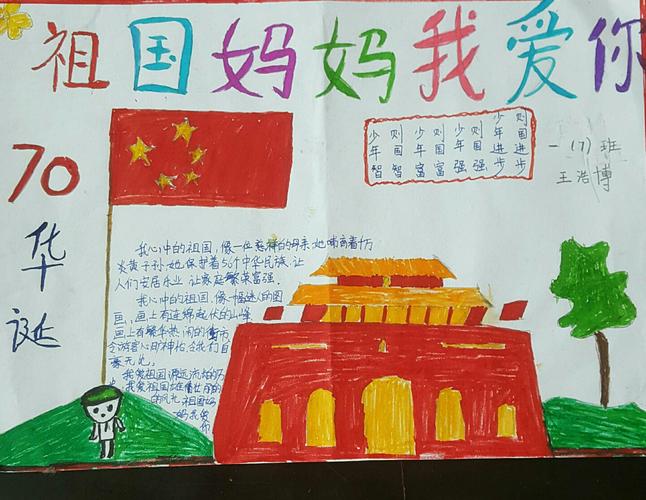 祖国妈妈我爱你
70
华
诞
少年智
则国智
少年富
则国富
少年强
则国强
少年进步
则国进步
一(7)班
王浩博
我心中的祖国,像一位慈祥的母亲,她哺育着千万
炎黄子孙.她保护着56个中华民族,让
人们安居乐业,让家庭繁荣富强.
我心中的祖国.像一幅迷人的图
画,画上有连绵起伏的山峰
画上有繁华热闹的街市,
令游客心旷神怡,令我们自
豪无比.
我爱祖国源远流长的历
史,我爱祖国
的风光 祖国妈
妈我爱
你